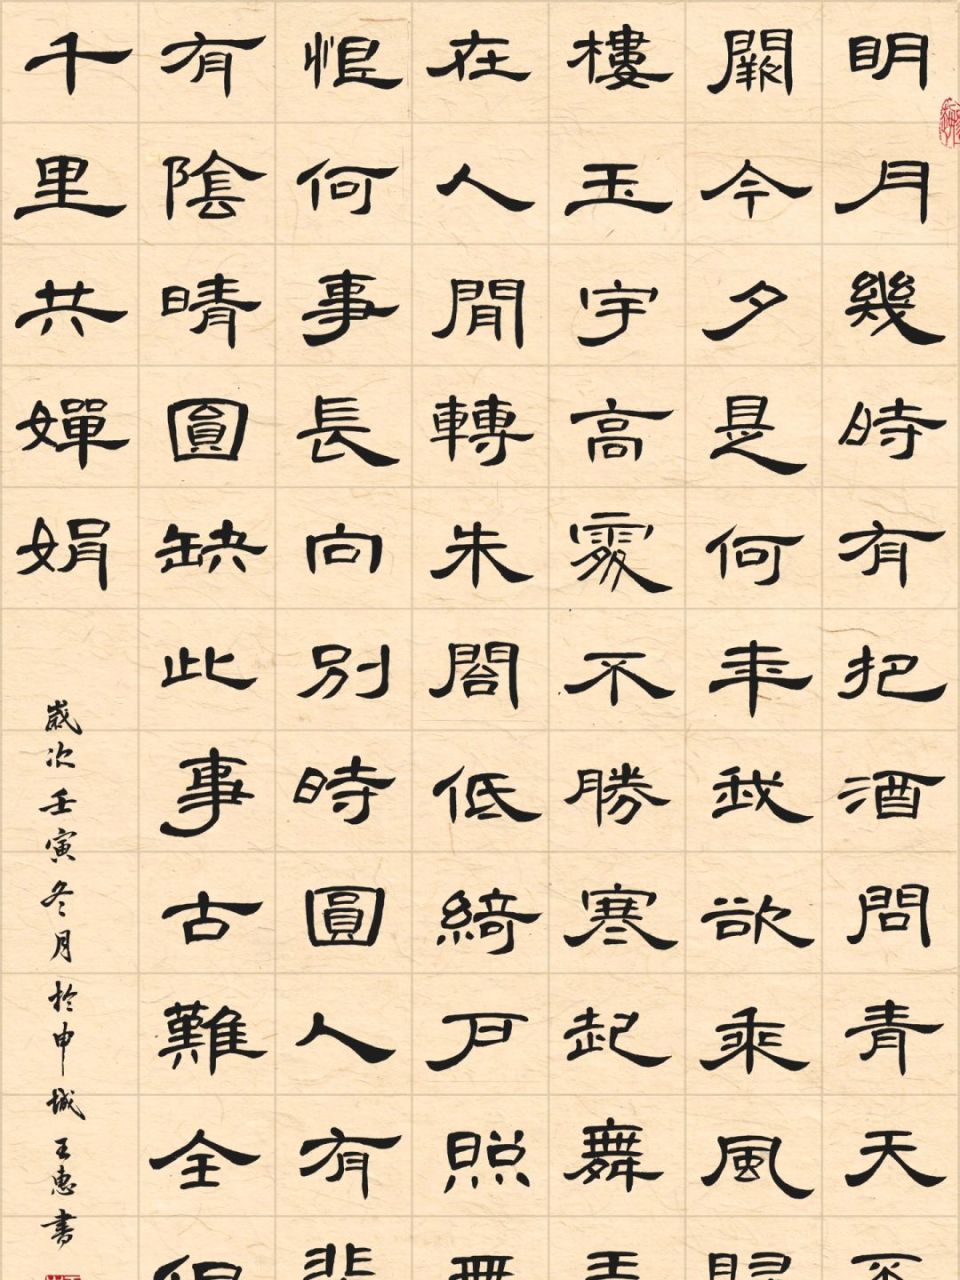 明月幾時有把酒問青天不
闕今夕是何年我欲乘風歸
樓玉宇高處不勝寒起舞弄
在人閒轉朱閣低綺戶照無
恨何事長向別時圓人有悲
有陰晴圓缺此事古難全但
千里共嬋娟
歲次壬寅冬月於申城王惠書